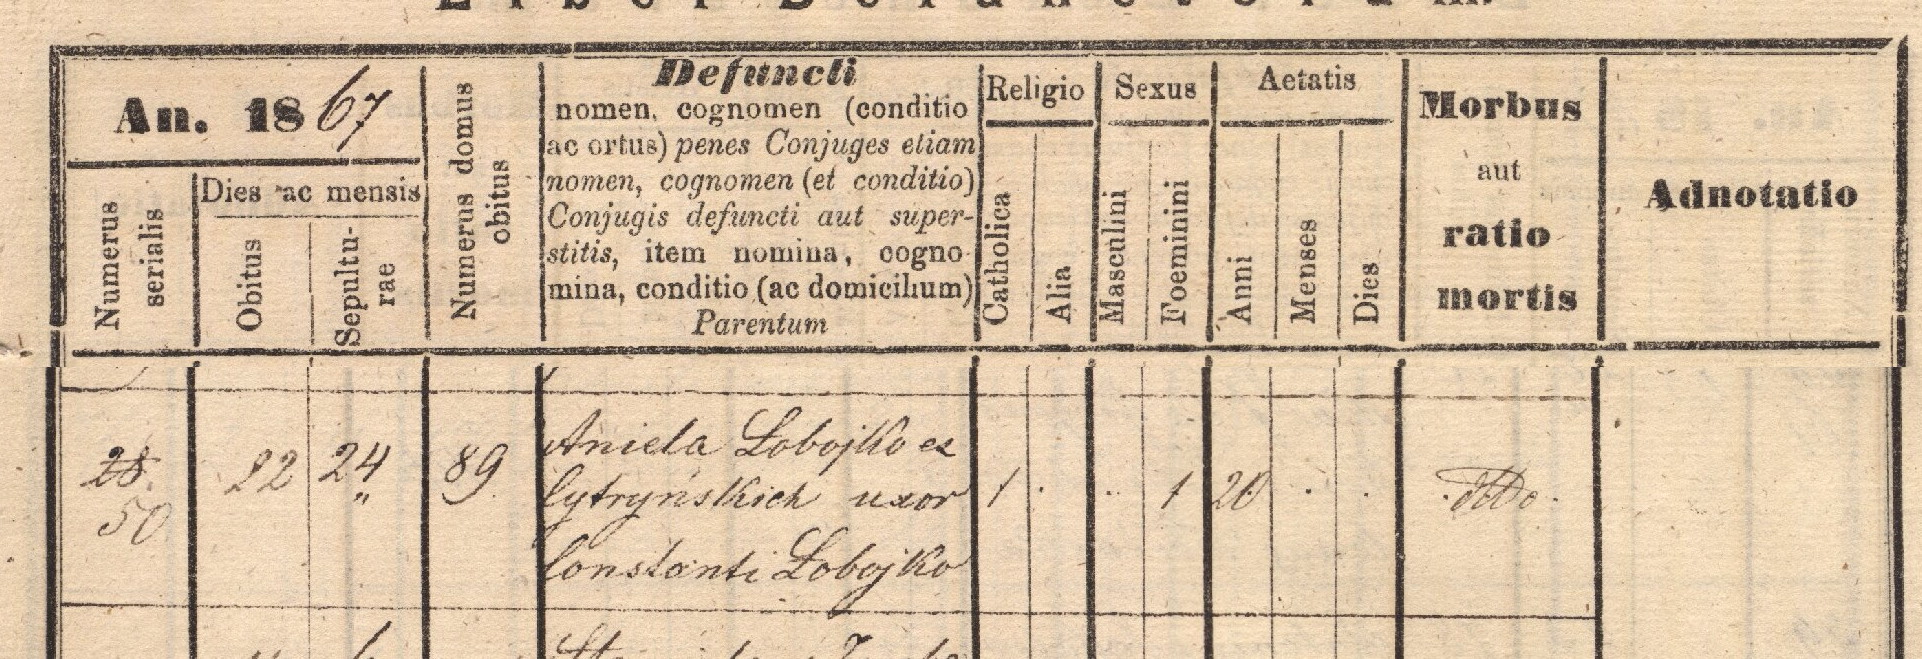 Liber Defunctorum.
An. 1867
Numerus serialis
Dies ac mensis
Obitus
Sepultu-
rae
Numerus domus
obitus
Defuncti
nomen, cognomen (conditio
ac ortus) penes Conjuges etiam
nomen, cognomen (et conditio)
Conjugis defuncti aut super-
stitis, item nomina, cogno-
mina, conditio (ac domicilium)
Parentum
Religio
Catholica
Alia
Sexus
Masculini
Foeminini
Aetatis
Anni
Menses
Dies
Morbus
aut
ratio
mortis
Adnotatio
28.
50
22
24
"
89
Aniela Łobojko ex
Cytryńskich uxor
Constanti Łobojko
1 · · · 1 20 · ·